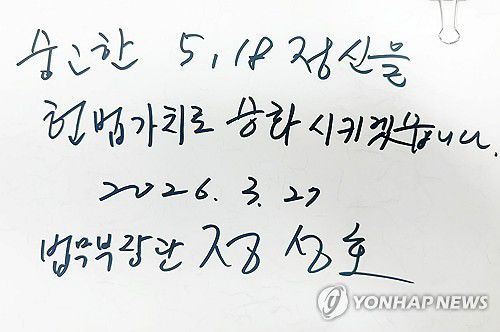 숭고한 5.18 정신을
헌법가치로 승화 시키겠습니다.
2026. 3. 27
법무부장관 정성호
YONHAP NEWS